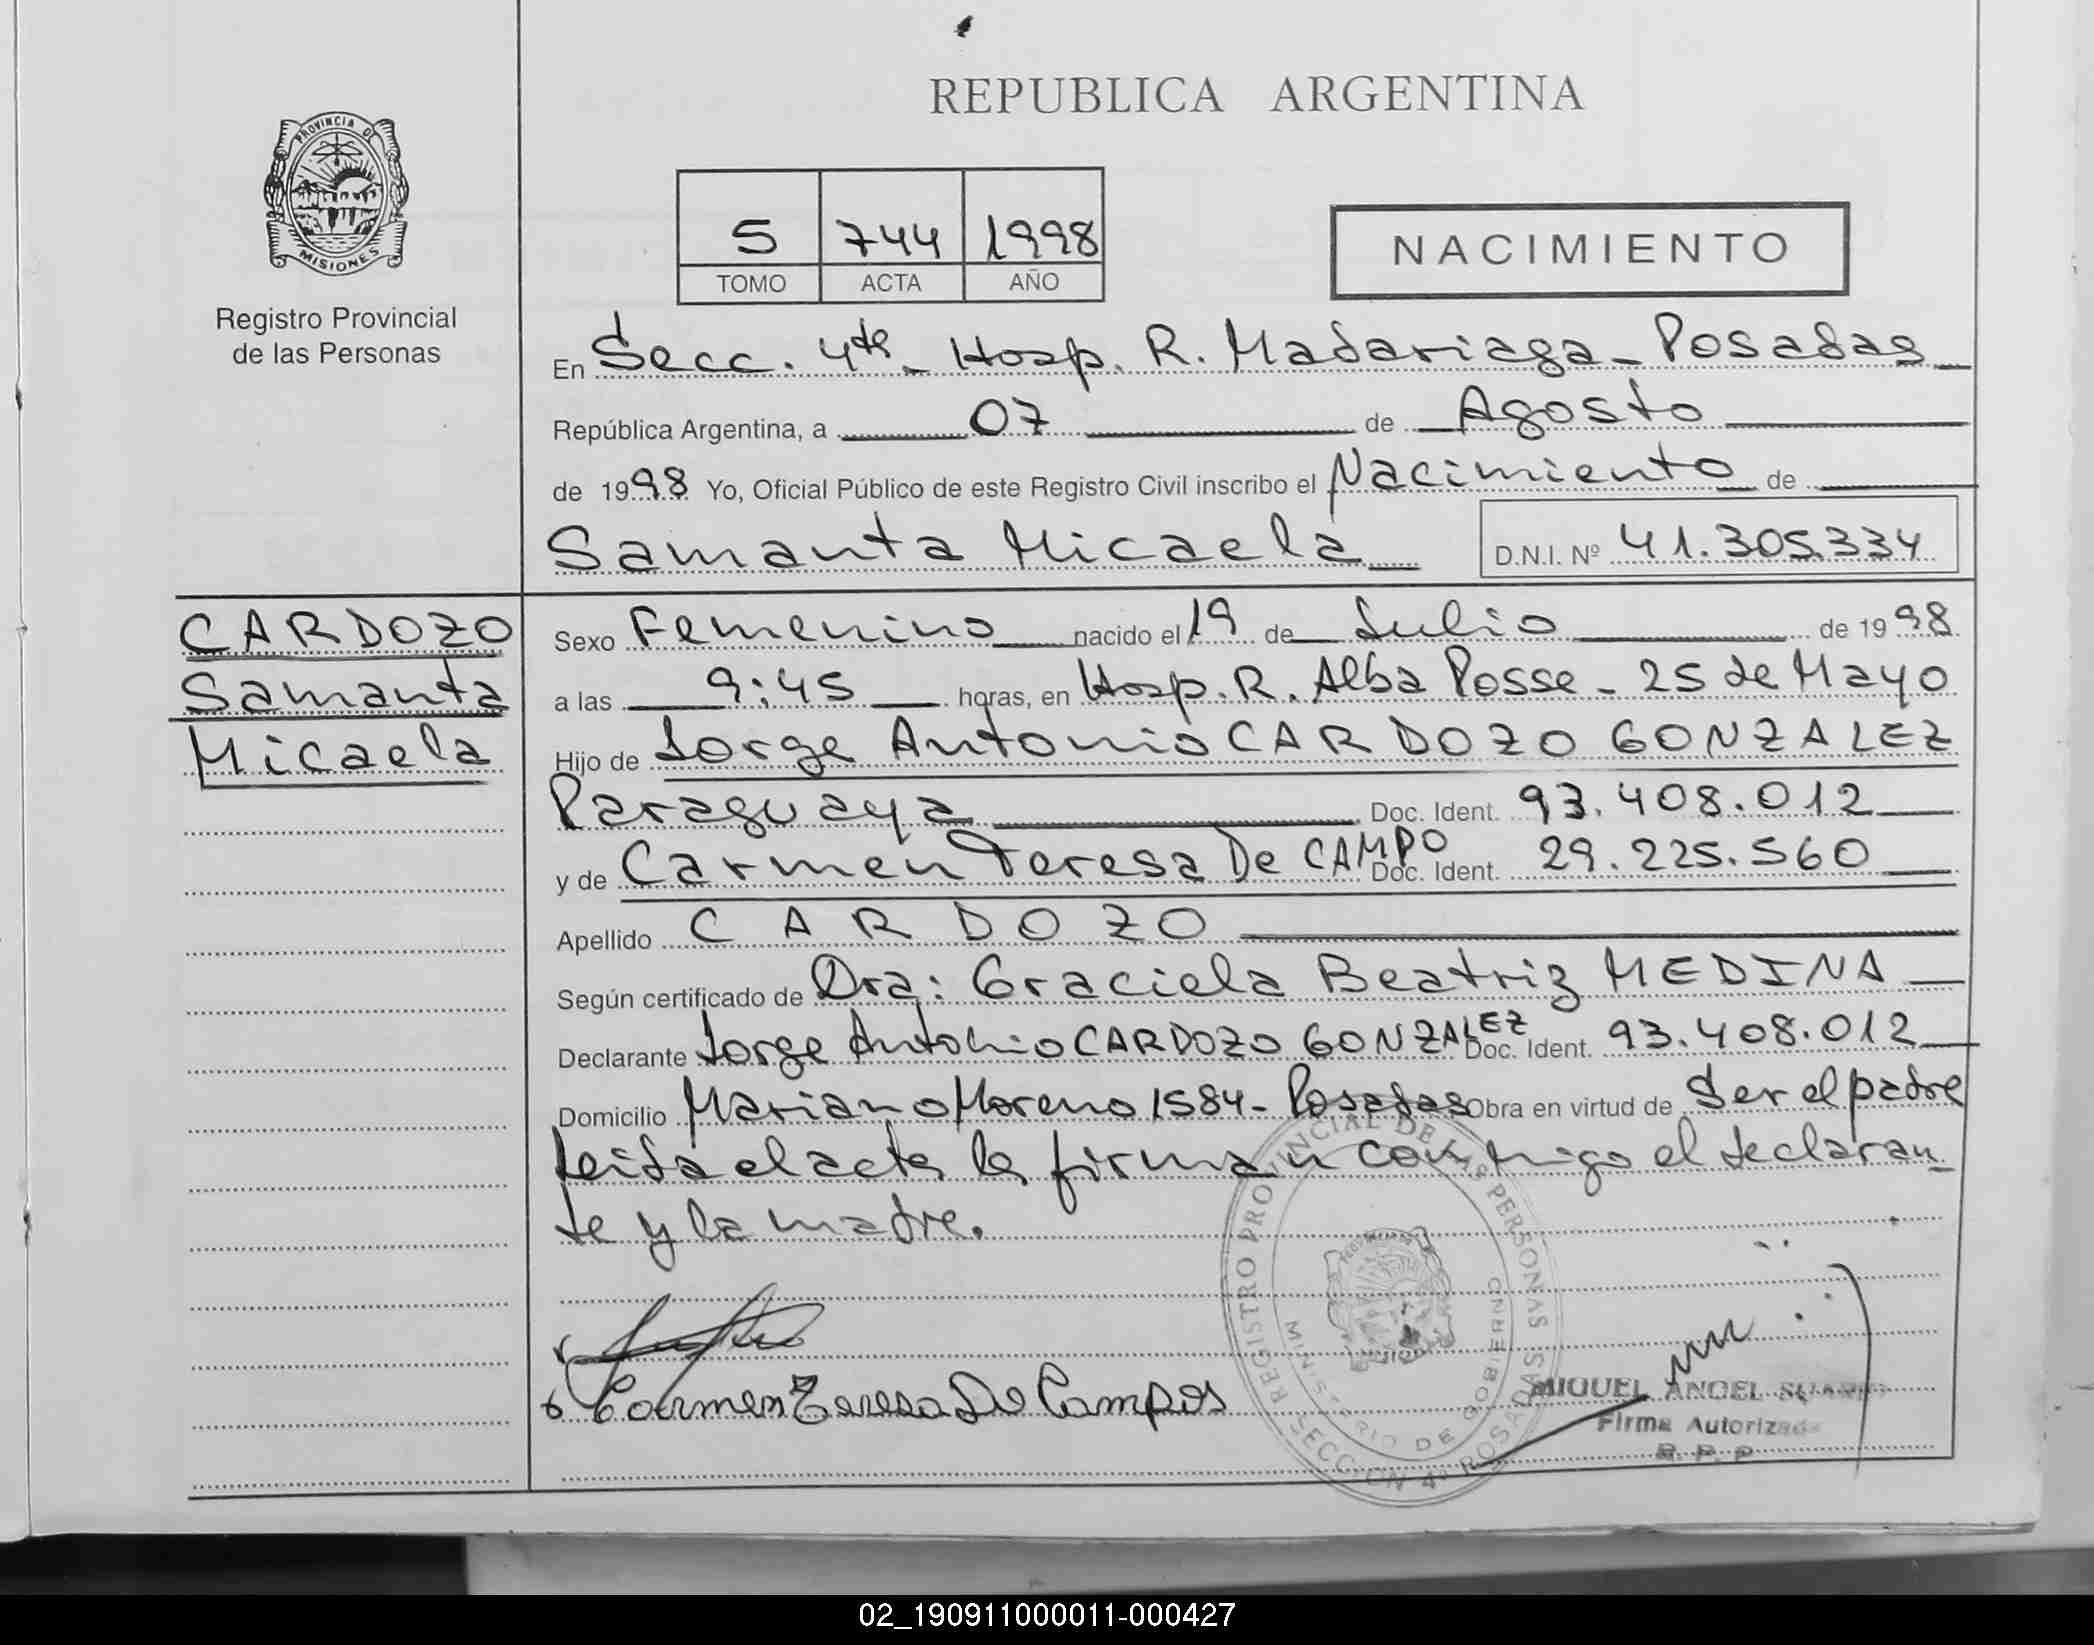 REPUBLICA ARGENTINA
PROVINCIA DE
MISIONES
Registro Provincial
de las Personas
5 744 1998
TOMO ACTA AÑO
NACIMIENTO
En Secc. 4ta - Hosp. R. Madariaga - Posadas
República Argentina, a 07 de Agosto
de 1998 Yo, Oficial Público de este Registro Civil inscribo el Nacimiento de
Samanta Micaela D.N.I. Nº 41.305.334
CARDOZO
Samanta
Micaela
Sexo Femenino nacido el 19 de Julio de 1998
a las 9:45 horas, en Hosp. R. Alba Posse - 25 de Mayo
Hijo de Jorge Antonio CARDOZO GONZALEZ
Paraguaya Doc. Ident. 93.408.012
y de Carmen Teresa De CAMPO Doc. Ident. 29.225.560
Apellido CARDOZO
Según certificado de Dra: Graciela Beatriz MEDINA
Declarante Jorge Antonio CARDOZO GONZALEZ Doc. Ident. 93.408.012
Domicilio Mariano Moreno 1584 - Posadas Obra en virtud de Ser el padre
leida el acta la firman conmigo el declaran-
te y la madre.
REGISTRO PROVINCIAL DE LAS PERSONAS
MINISTERIO DE GOBIERNO
SECCION 4ª POSADAS
Carmen Teresa De Campos
MIGUEL ANGEL
Firma Autorizada
R. P. P.
02_190911000011-000427